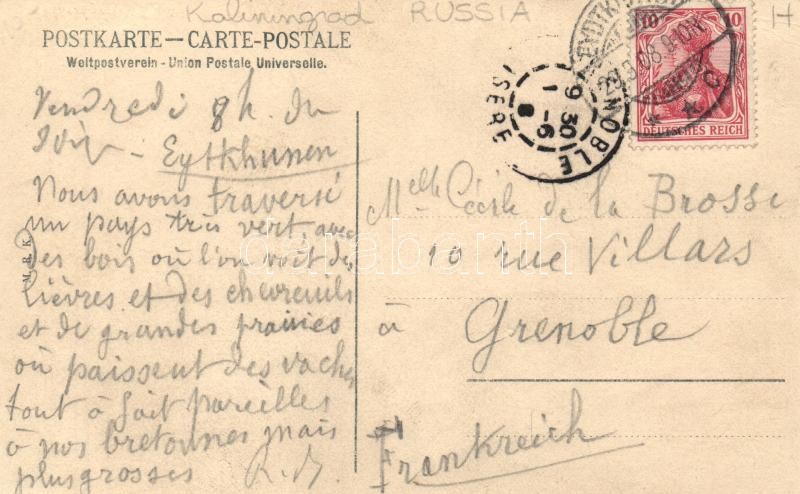 Kaliningrad RUSSIA H
POSTKARTE — CARTE-POSTALE
Weltpostverein - Union Postale Universelle.
10 10
DEUTSCHES REICH
GRENOBLE
ISERE
9 30
1 -6
8
Vendredi 8h. du
soir - Eytkhunen
Nous avons traversé
un pays très vert, avec
des bois où l'on voit des
lièvres et des chevreuils
et de grandes prairies
où paissent des vaches
tout à fait pareilles
à nos bretonnes mais
plus grosses
M. R. K.
Melle Cécile de la Brosse
10 rue Villars
à Grenoble
Frankreich
darabanth